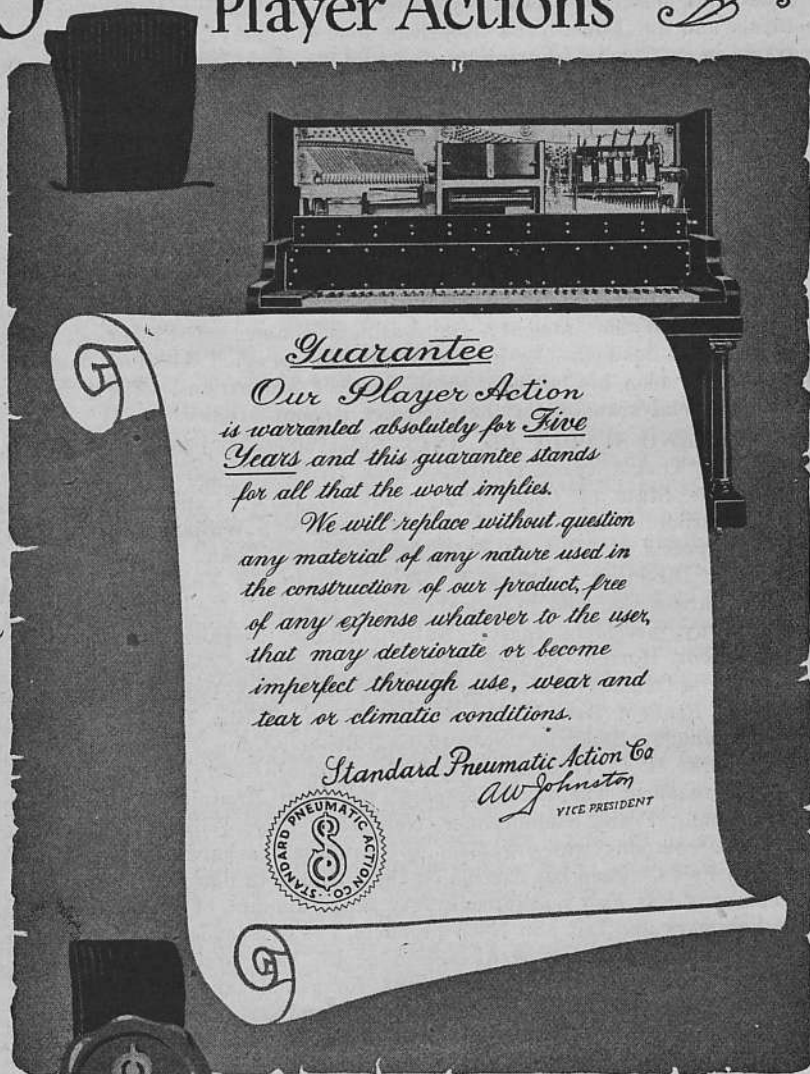 Player Actions
Guarantee
Our Player Action
is warranted absolutely for Five
Years and this guarantee stands
for all that the word implies.
We will replace without question
any material of any nature used in
the construction of our product, free
of any expense whatever to the user,
that may deteriorate or become
imperfect through use, wear and
tear or climatic conditions.
Standard Pneumatic Action Co
AW Johnston
VICE PRESIDENT
STANDARD PNEUMATIC ACTION CO.
S